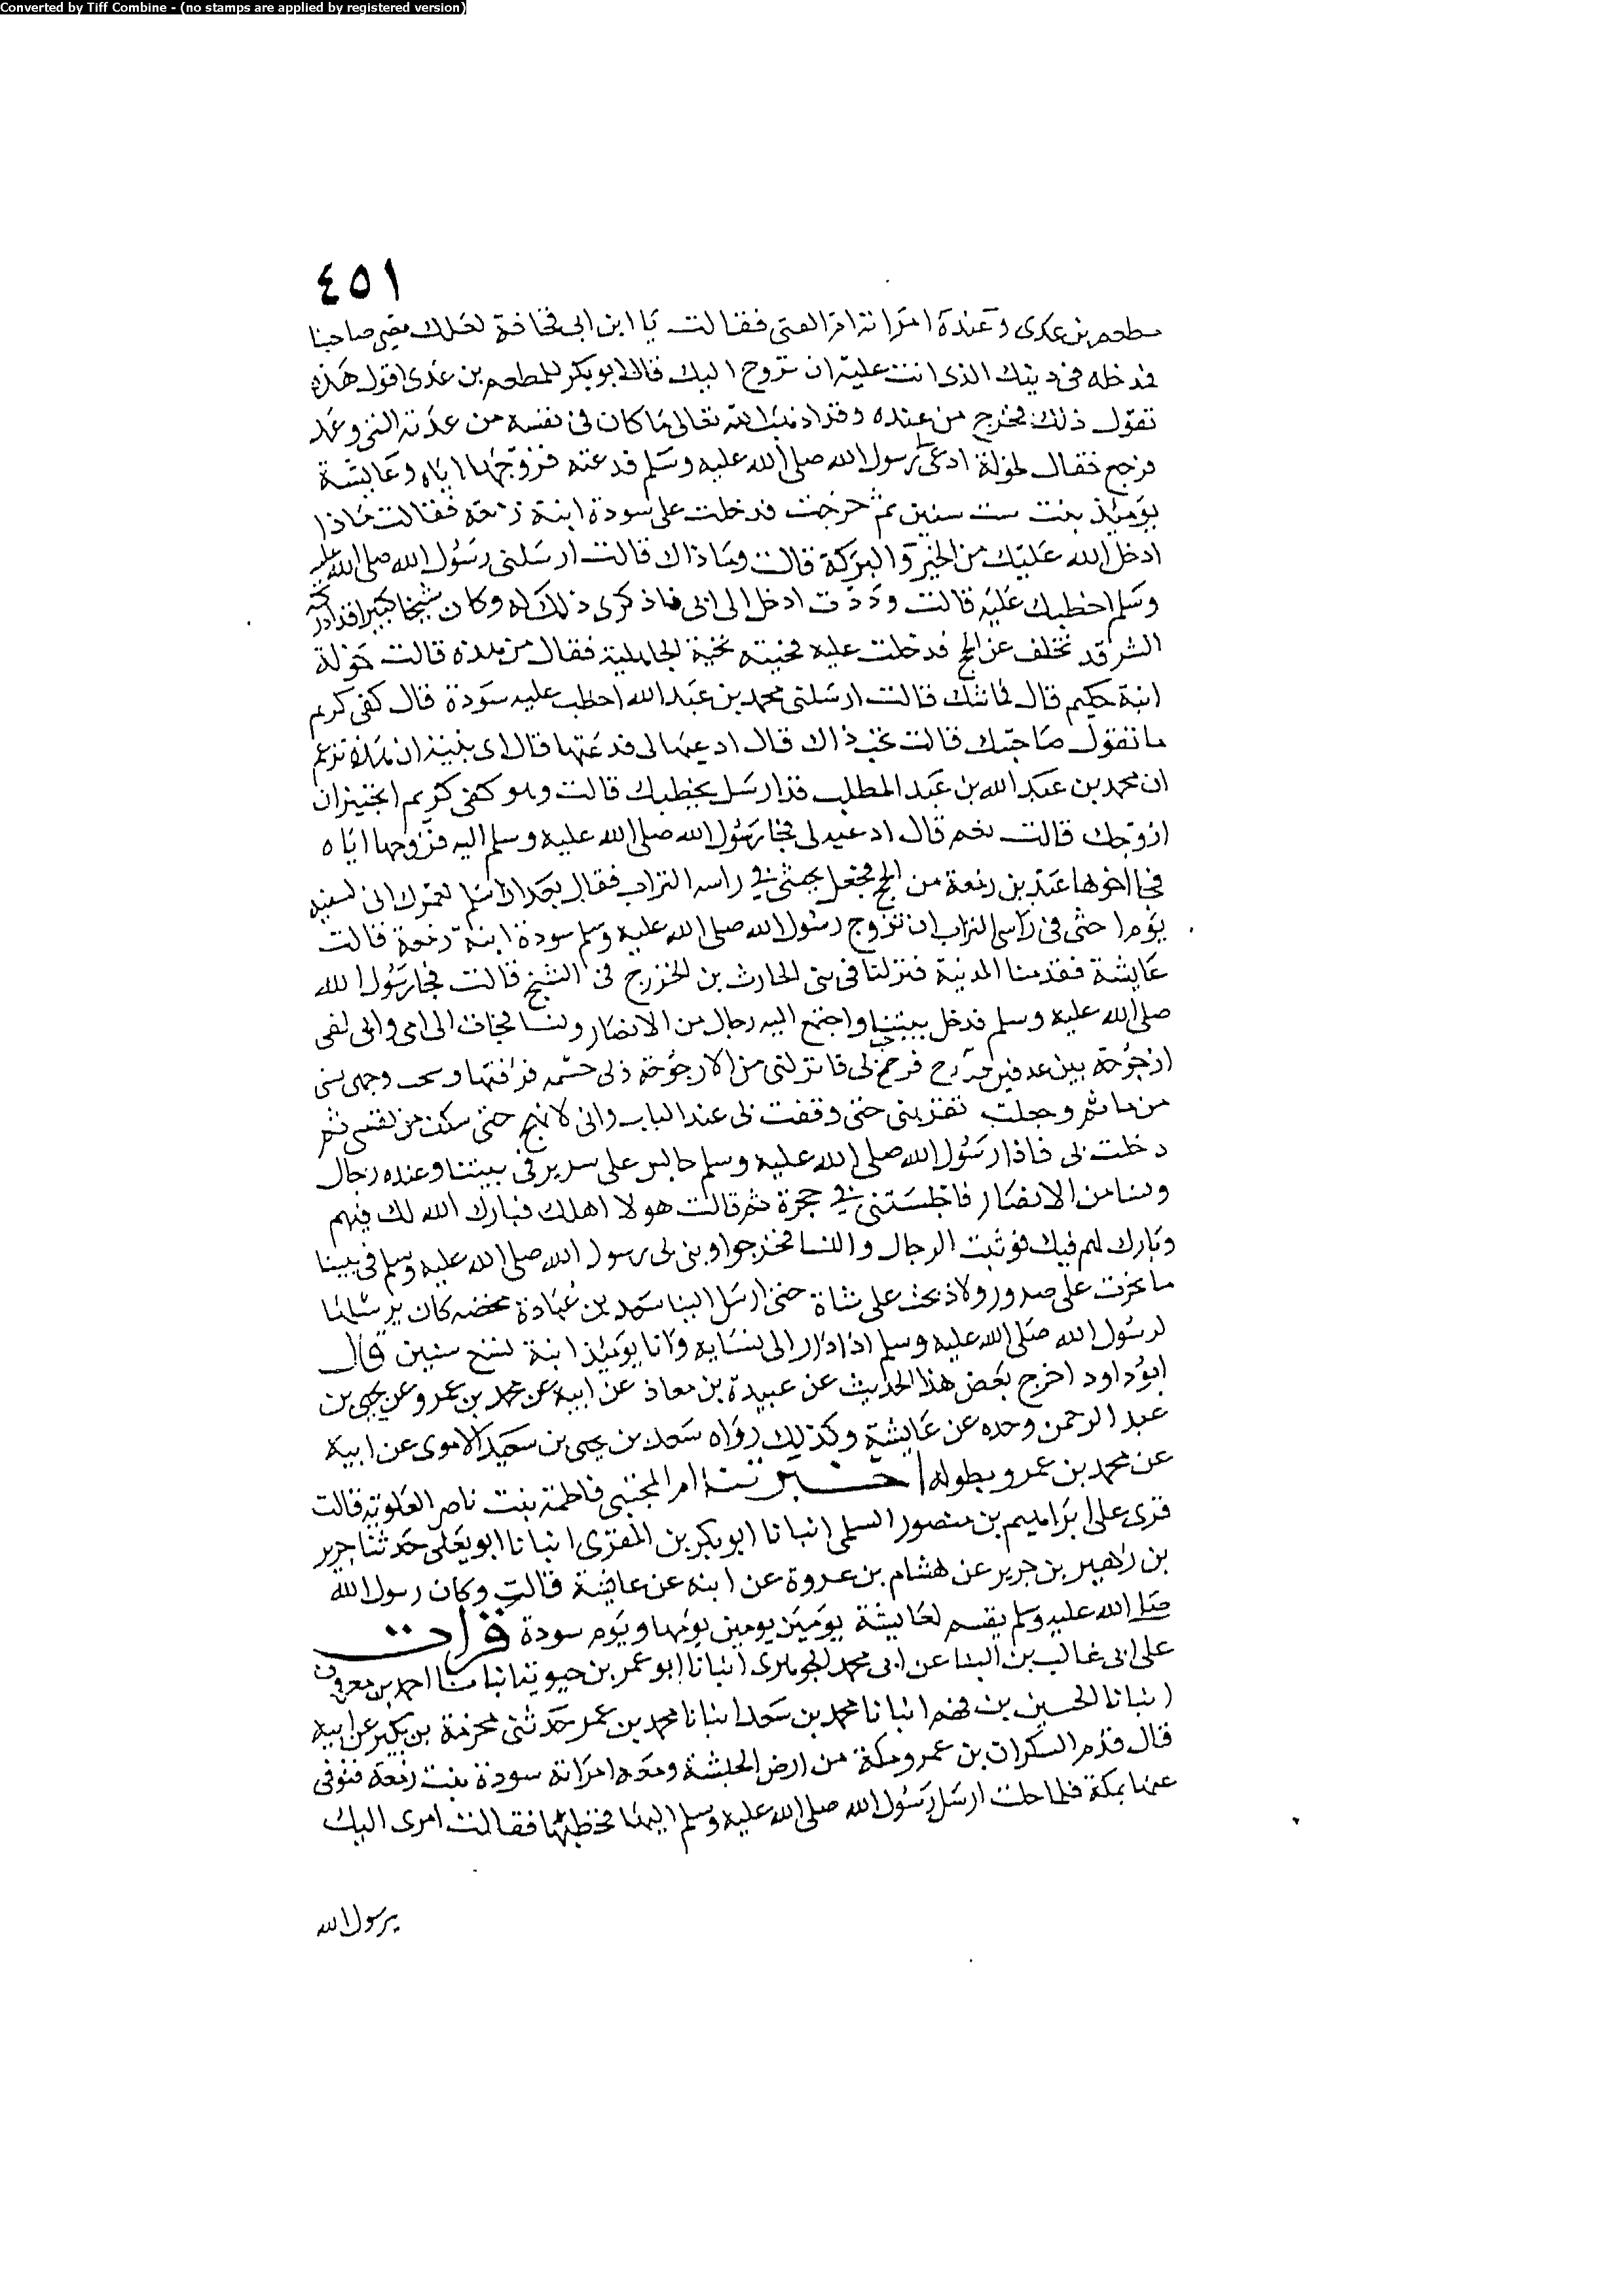 Converted by Tiff Combine - (no stamps are applied by registered version)
٤٥١
مطعم بن عدى وعنده امراته ام الفتى فقالت يا ابن ابى قحافة لعلك مصبى صاحبنا
فدخله فى دينك الذى انت عليه ان تزوج اليك قال ابو بكر للمطعم بن عدى اقول هذه
تقول ذلك فخرج من عنده وقد اذهب الله تعالى ما كان فى نفسه من عدته التى وعد
فرجع فقال لخولة ادعى لى رسول الله صلى الله عليه وسلم فدعته فزوجها اياه وعايشة
يوميذ بنت ست سنين ثم خرجت فدخلت على سودة ابنة زمعة فقالت ماذا
ادخل الله عليك من الخير والبركة قالت وما ذاك قالت ارسلنى رسول الله صلى الله عليه
وسلم اخطبك عليه قالت وددت ادخل الى ابى فاذكرى ذلك له وكان شيخا كبيرا قد ادركته
السن قد تخلف عن الحج فدخلت عليه فحيته تحية الجاهلية فقال من هذه قالت خولة
ابنة حكيم قال فما شانك قالت ارسلنى محمد بن عبد الله اخطب عليه سودة قال كفى كريم
ما تقول صاحبتك قالت تحب ذاك قال ادعيها لى فدعتها قال اى بنية ان هذه تزعم
ان محمد بن عبد الله بن عبد المطلب قد ارسل يخطبك قالت وهو كفى كريم اتحبين ان
ازوجك قالت نعم قال ادعيه لى فجا رسول الله صلى الله عليه وسلم اليه فزوجها اياه
فجا اخوها عبد بن زمعة من الحج فجعل يحثى فى راسه التراب فقال بعد ان اسلم لعمرك انى لسفيه
يوم احثى فى راسى التراب ان تزوج رسول الله صلى الله عليه وسلم سودة ابنة زمعة قالت
عايشة فقدمنا المدينة فنزلنا فى بنى الحارث بن الخزرج فى السنح قالت فجا رسول الله
صلى الله عليه وسلم فدخل بيتنا واجتمع اليه رجال من الانصار ونسا فجات الى امى وانى لفى
ارجوحة بين عذقين فانزلتنى من الارجوحة ولى جميمة ففرقتها ومسحت وجهى بشى
من ما ثم وجعلت تقودنى حتى وقفت بى عند الباب وانى لانهج حتى سكن من نفسى ثم
دخلت بى فاذا رسول الله صلى الله عليه وسلم جالس على سرير فى بيتنا وعنده رجال
ونسا من الانصار فاجلستنى فى حجرة ثم قالت هولا اهلك فبارك الله لك فيهم
وبارك لهم فيك فوثبت الرجال والنسا فخرجوا وبنى بى رسول الله صلى الله عليه وسلم فى بيتنا
ما نحرت على جزور ولا ذبحت على شاة حتى ارسل الينا سعد بن عبادة بجفنه كان يرسلها
لرسول الله صلى الله عليه وسلم اذا دار الى نسايه وانا يوميذ ابنة تسع سنين قال
ابو داود اخرج بعض هذا الحديث عن عبيدة بن معاذ عن ابيه عن محمد بن عمرو عن يحيى بن
عبد الرحمن وحده عن عايشة وكذلك رواه سعد بن يحيى بن سعيد الاموى عن ابيه
عن محمد بن عمرو بطوله اخبرتنا ام المجتبى فاطمة بنت ناصر العلوية قالت
قرى على ابراهيم بن منصور السلمى انبانا ابو بكر بن المقرى انبانا ابو يعلى حدثنا جرير
بن زهير بن جرير عن هشام بن عروة عن ابيه عن عايشة قالت وكان رسول الله
صلى الله عليه وسلم يقسم لعايشة يومين يومين يومها ويوم سودة قرات
على ابى غالب بن البنا عن ابى محمد الجوهرى انبانا ابو عمر بن حيويه انبانا احمد بن معروف
انبانا الحسين بن فهم انبانا محمد بن سعد انبانا محمد بن عمر حدثنى مخرمة بن بكير عن ابيه
قال قدم السكران بن عمرو مكة من ارض الحبشة ومعه امراته سودة بنت زمعة فتوفى
عنها بمكة فلما حلت ارسل رسول الله صلى الله عليه وسلم اليها فخطبها فقالت امرى اليك
يرسول الله